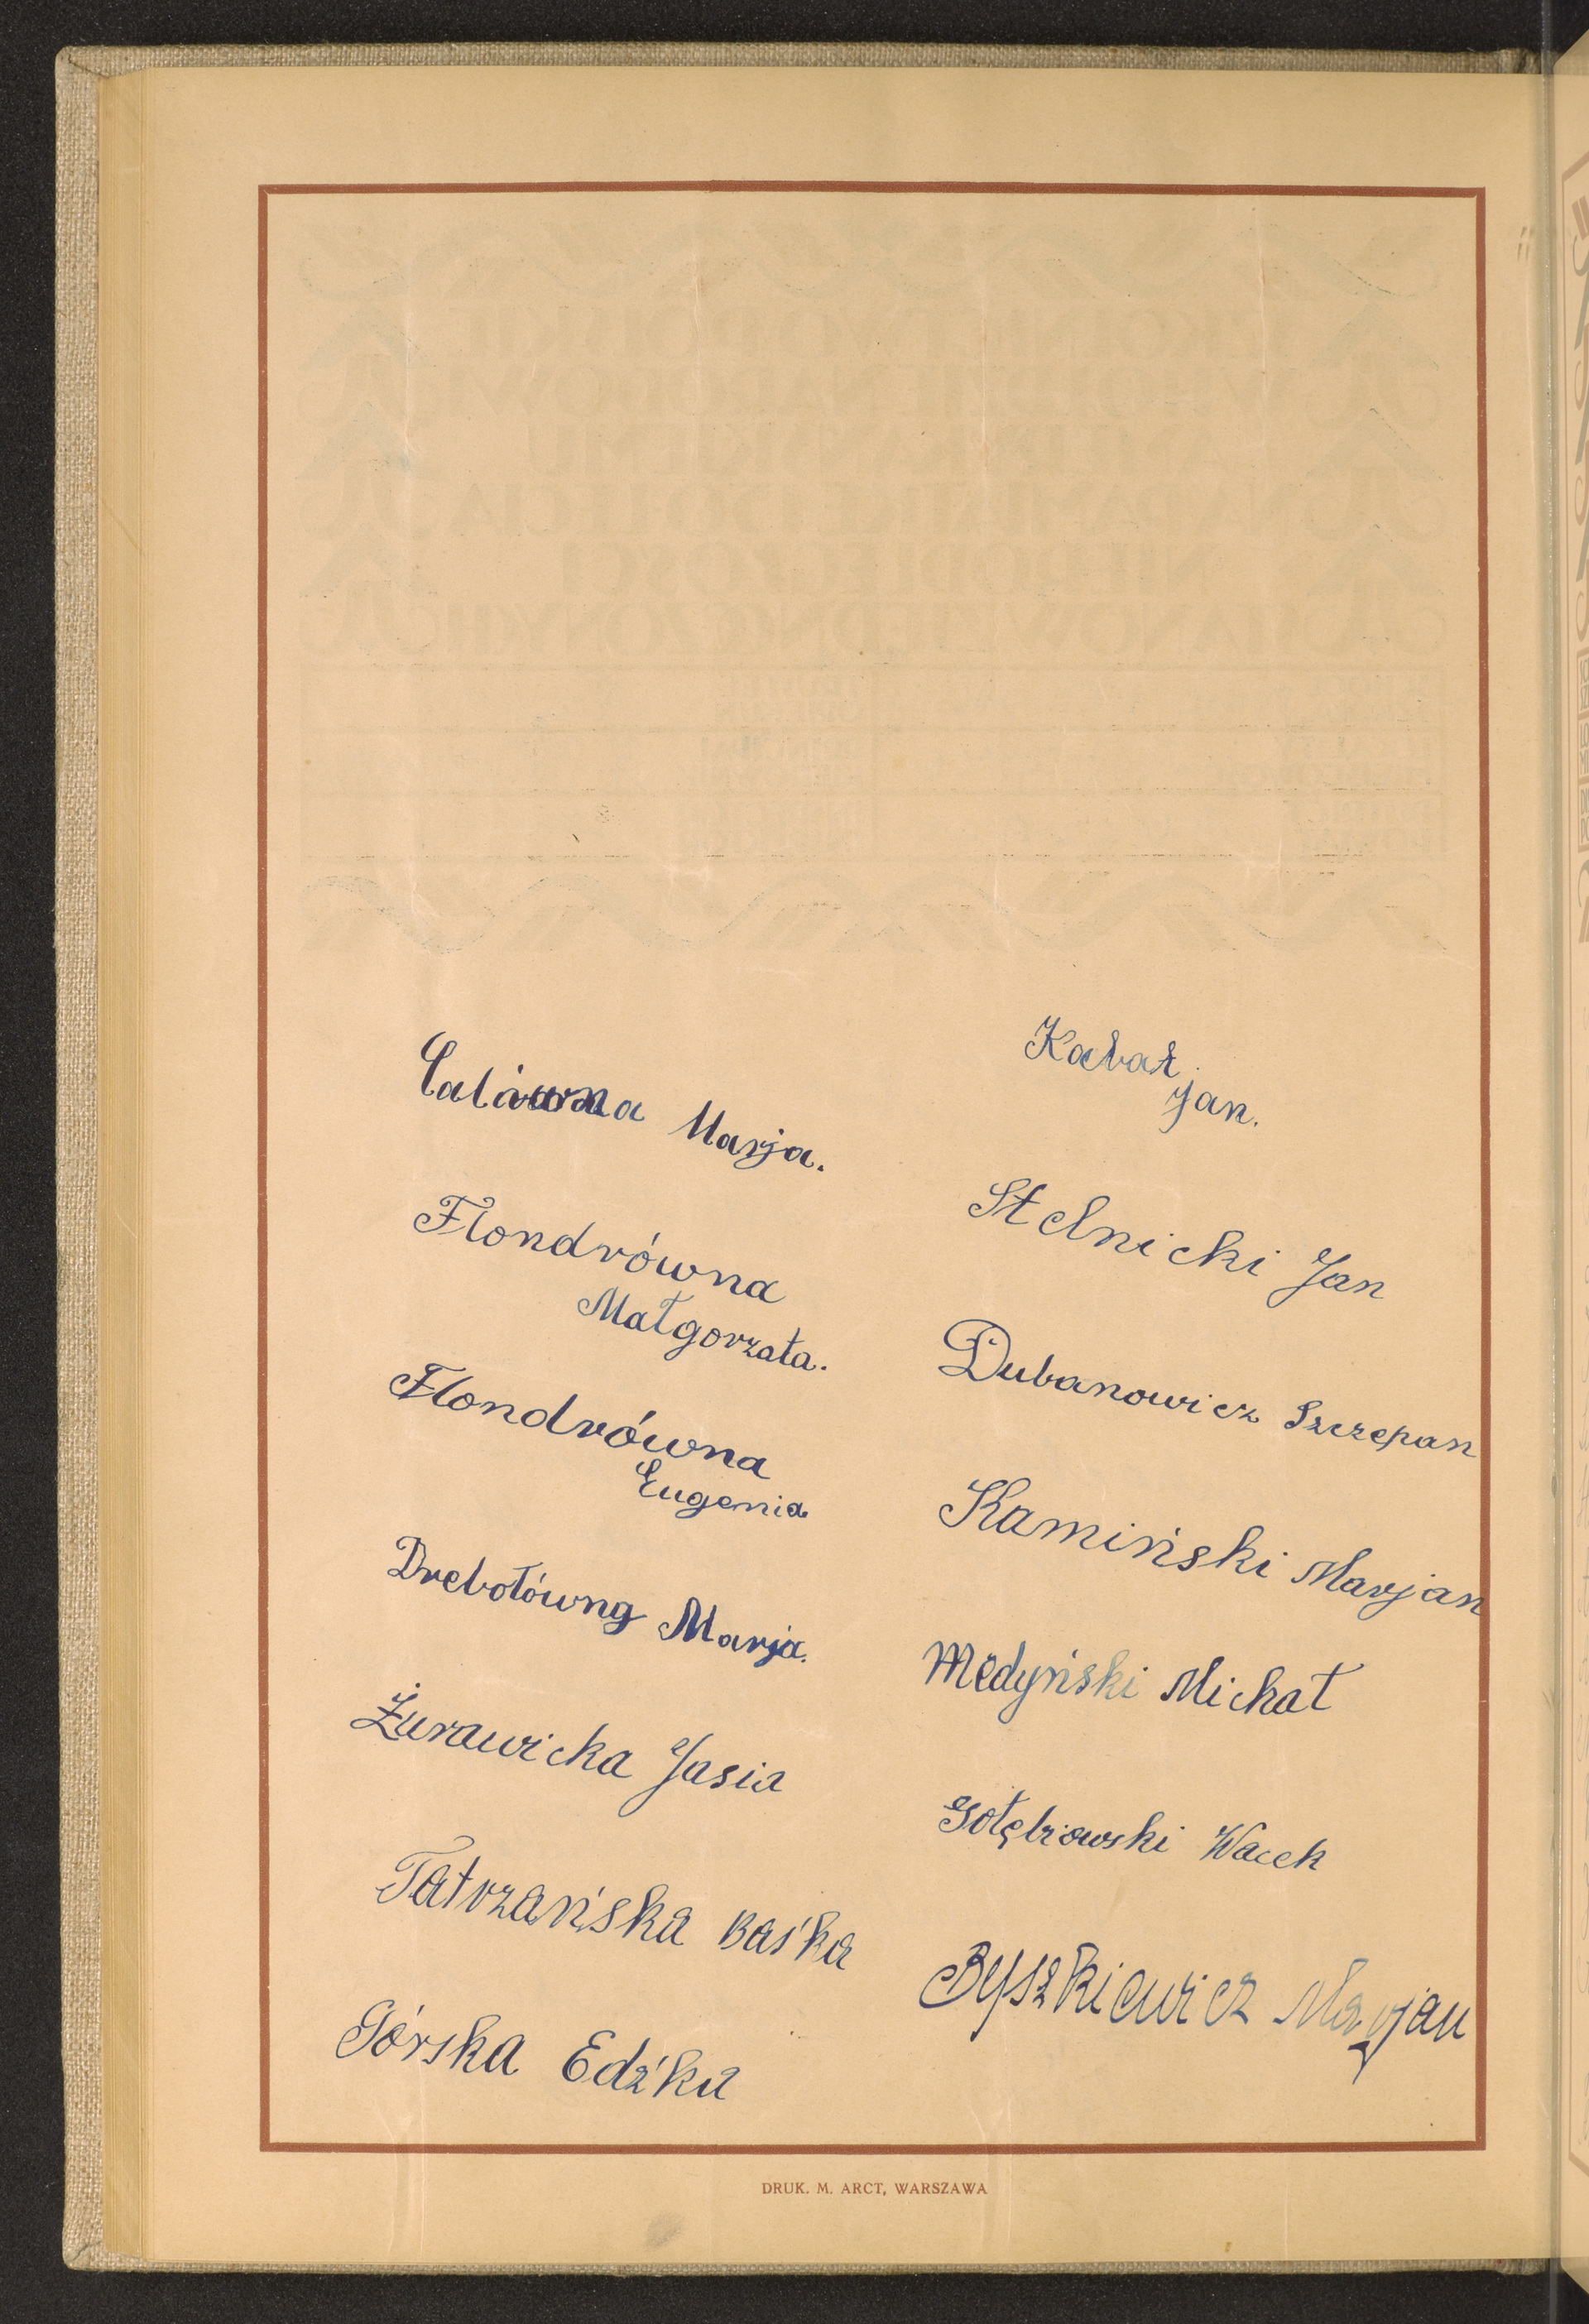 Calówna Marja.
Flondrówna
Małgorzata.
Flondrówna
Eugenia
Drebotówng Marja.
Żurawicka Jasia
Tatrzańska Baśka
Górska Edźka
Kabat
Jan.
Stelnicki Jan
Dubanowicz Szczepan
Kamiński Marjan
Medyński Michał
Gołębiowski Wacek
Byszkiewicz Marjan
DRUK. M. ARCT, WARSZAWA